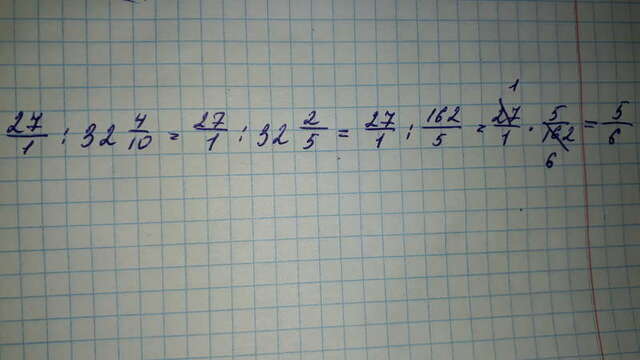 27/1 : 32 4/10 = 27/1 : 32 2/5 = 27/1 : 162/5 = 27/1 · 5/162 = 5/6
1
6